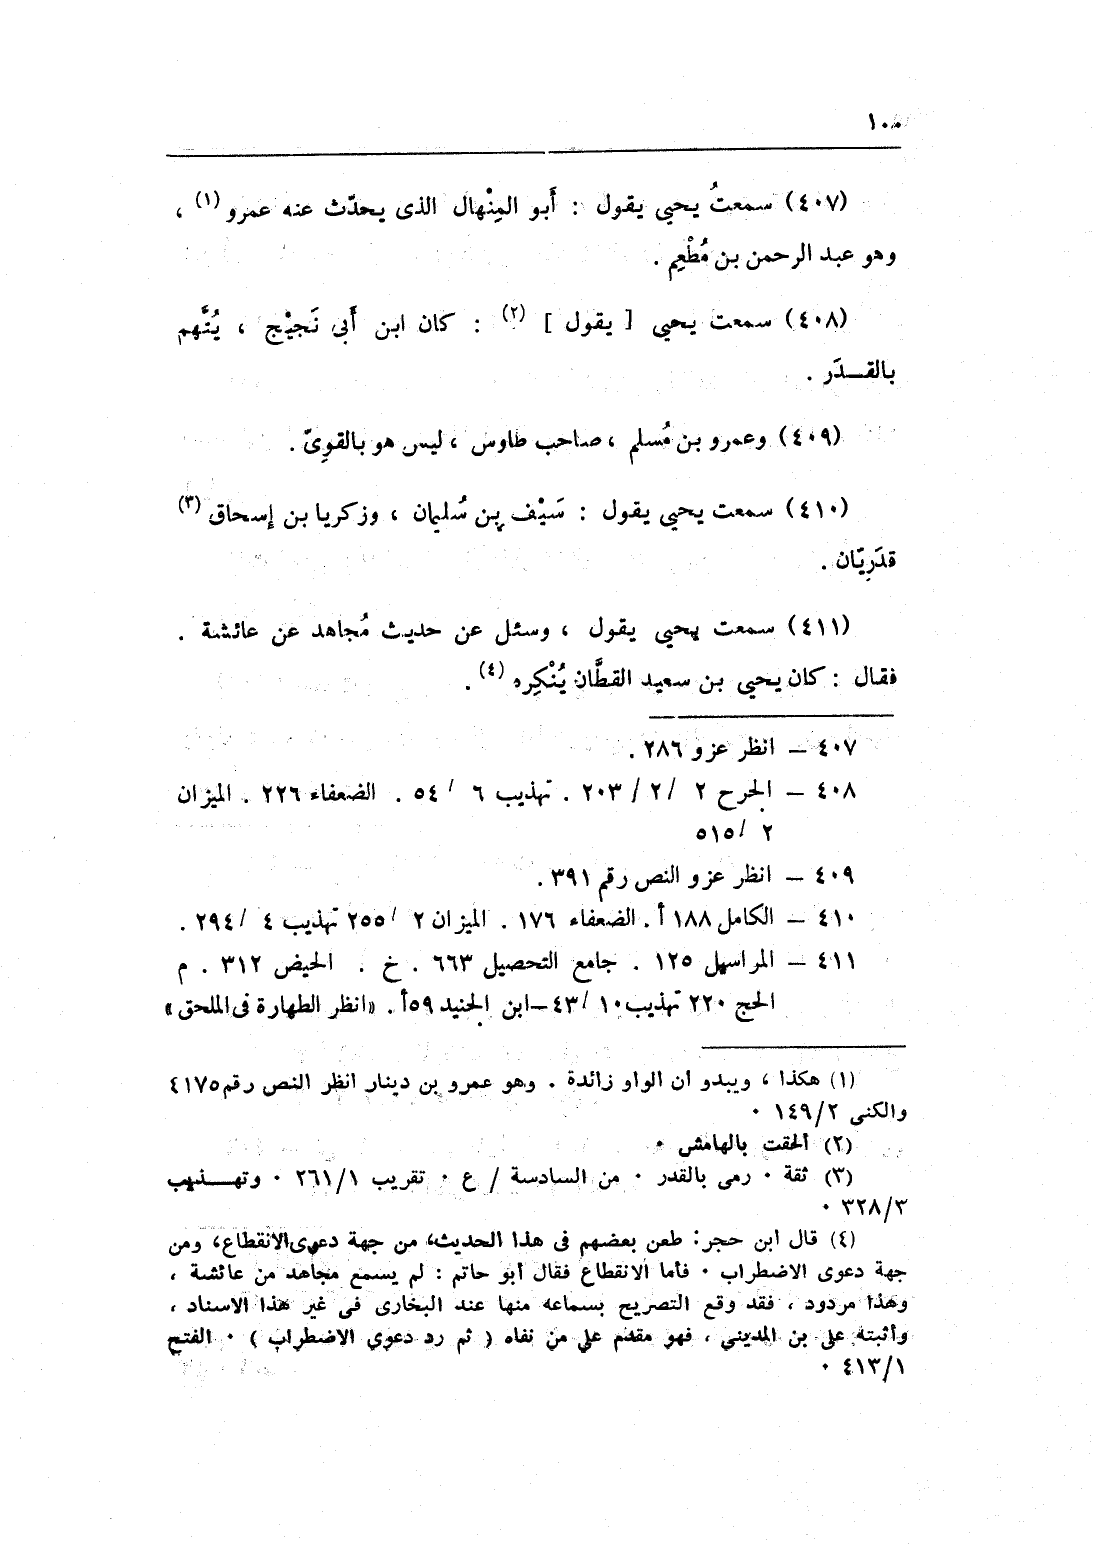 (٤٠٧) سمعتُ يحيى يقول : أَبو المِنْهال الذى يحدّث عنه عمرو (١) ،
وهو عبد الرحمن بن مُطْعِم .
(٤٠٨) سمعت يحيى [ يقول ] (٢) : كان ابن أَبى نَجيْج ، يُتَّهم
بالقـــدَر .
(٤٠٩) وعمرو بن مُسلم ، صاحب طاوس ، ليس هو بالقوِىّ .
(٤١٠) سمعت يحيى يقول : سَيْف بن سُليمان ، وزكريا بن إسحاق (٣)
قدَرِيّان .
(٤١١) سمعت يحيى يقول ، وسئل عن حديث مُجاهد عن عائشة .
فقال : كان يحيى بن سعيد القطَّان يُنْكِره (٤) .
٤٠٧ – انظر عزو ٢٨٦ .
٤٠٨ – الجرح ٢ / ٢ / ٢٠٣ . تهذيب ٦ / ٥٤ . الضعفاء ٢٢٦ . الميزان
٢ / ٥١٥
٤٠٩ – انظر عزو النص رقم ٣٩١ .
٤١٠ – الكامل ١٨٨ أ . الضعفاء ١٧٦ . الميزان ٢ / ٢٥٥ تهذيب ٤ / ٢٩٤ .
٤١١ – المراسيل ١٢٥ . جامع التحصيل ٦٦٣ . خ . الحيض ٣١٢ . م
الحج ٢٢٠ تهذيب ١٠ / ٤٣ – ابن الجنيد ٥٩أ . «انظر الطهارة فى الملحق»
(١) هكذا ، ويبدو ان الواو زائدة . وهو عمرو بن دينار انظر النص رقم ٤١٧٥
والكنى ١٤٩/٢ ٠
(٢) ألحقت بالهامش ٠
(٣) ثقة ٠ رمى بالقدر ٠ من السادسة / ع ٠ تقريب ٢٦١/١ ٠ وتهـــذيب
٣٢٨/٣ ٠
(٤) قال ابن حجر: طعن بعضهم فى هذا الحديث، من جهة دعوى الانقطاع، ومن
جهة دعوى الاضطراب ٠ فأما الانقطاع فقال أبو حاتم : لم يسمع مجاهد من عائشة ،
وهذا مردود ، فقد وقع التصريح بسماعه منها عند البخارى فى غير هذا الاسناد ،
وأثبته على بن المديني ، فهو مقدم على من نفاه ( ثم رد دعوى الاضطراب ) ٠ الفتح
٤١٣/١ ٠